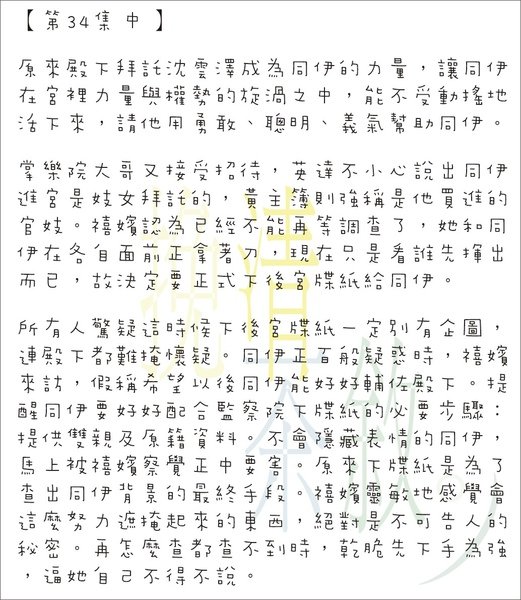 【第34集中】
原來殿下拜託沈雲澤成為同伊的力量，讓同伊
在宮裡力量與權勢的旋渦之中，能不受動搖地
活下來，請他用勇敢、聰明、義氣幫助同伊。
掌樂院大哥又接受招待，英達不小心說出同伊
進宮是妓女拜託的，黃主簿則強稱是他買進的
官妓。禧嬪認為已經不能再等調查了，她和同
伊在各自面前正拿著刀，現在只是看誰先揮出
而已，故決定要正式下後宮牒紙給同伊。
所有人驚疑這時候下後宮牒紙一定別有企圖，
連殿下都難掩懷疑。同伊正百般疑惑時，禧嬪
來訪，假稱希望以後同伊能好好輔佐殿下。提
醒同伊要好好配合監察院下牒紙的必要步驟：
提供雙親及原籍資料。不會隱藏表情的同伊，
馬上被禧嬪察覺正中要害。原來下牒紙是為了
查出同伊背景的最終手段。禧嬪靈敏地感覺會
這麼努力遮掩起來的東西，絕對是不可告人的
秘密。再怎麼查都查不到時，乾脆先下手為強
，逼她自己不得不說。